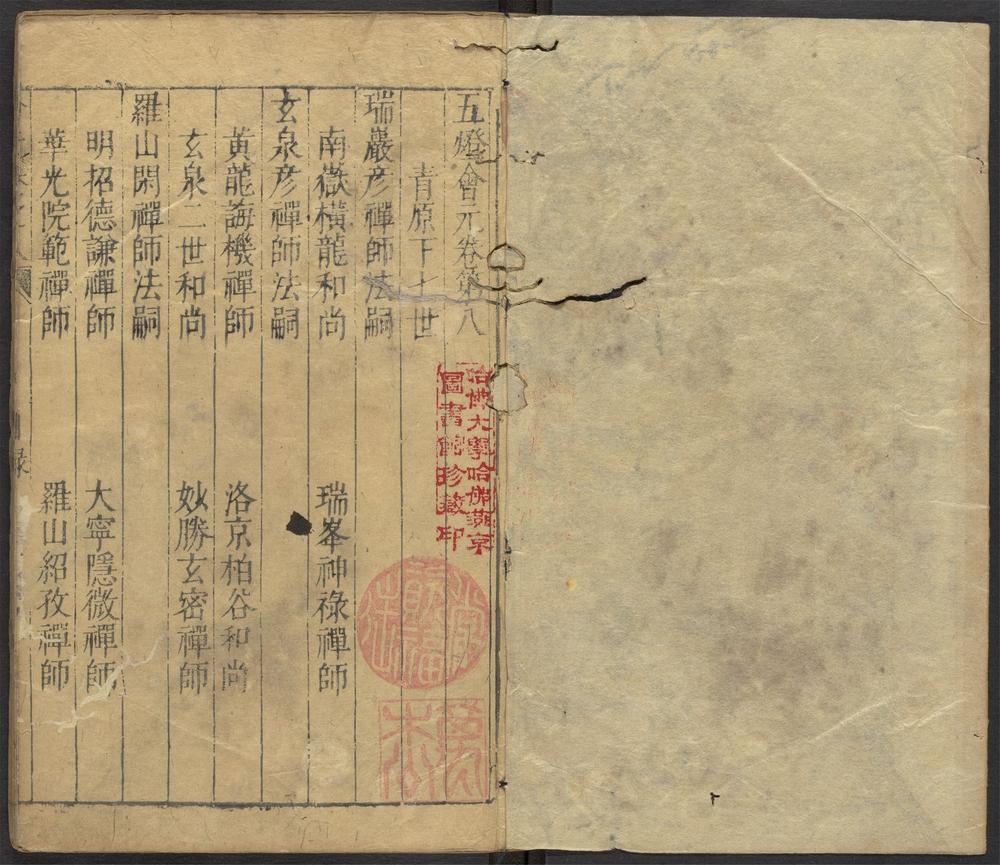 五燈會元卷第八
青原下七世
瑞巖彥禪師法嗣
南嶽橫龍和尚 瑞峯神祿禪師
玄泉彥禪師法嗣
黃龍誨機禪師 洛京柏谷和尚
玄泉二世和尚 妙勝玄密禪師
羅山閑禪師法嗣
明招德謙禪師 大寧隱微禪師
華光院範禪師 羅山紹孜禪師
哈佛大學哈佛燕京
圖書館珍藏印